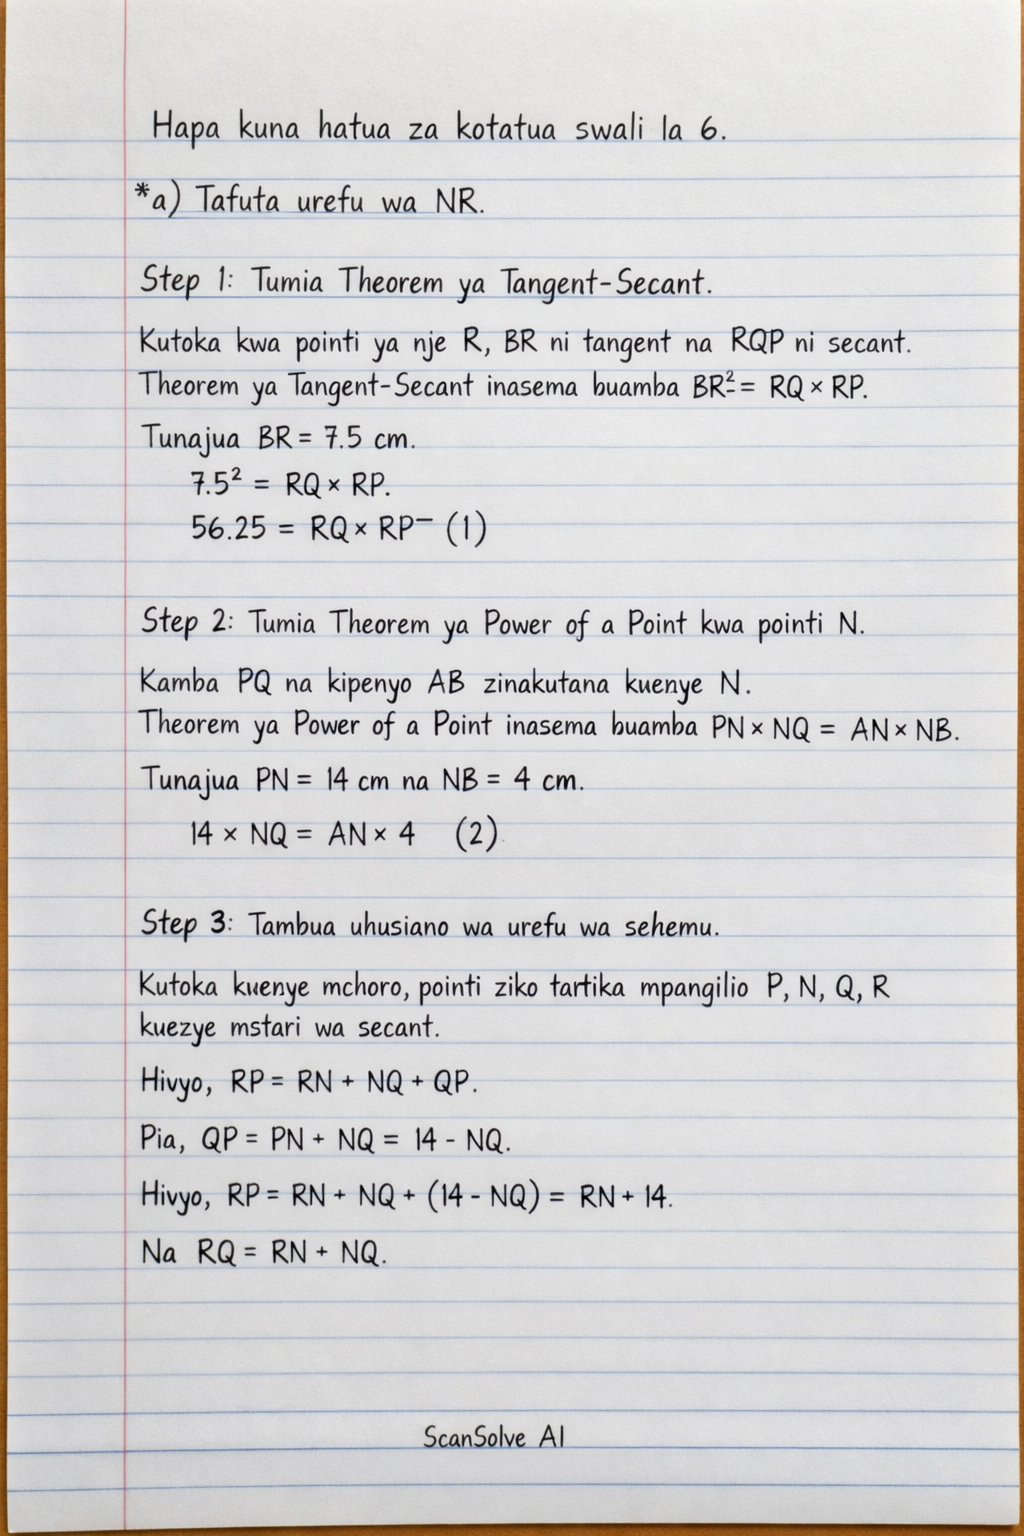 Hapa kuna hatua za kotatua swali la 6.
*a) Tafuta urefu wa NR.
Step 1: Tumia Theorem ya Tangent-Secant.
Kutoka kwa pointi ya nje R, BR ni tangent na RQP ni secant.
Theorem ya Tangent-Secant inasema buamba BR² = RQ × RP.
Tunajua BR = 7.5 cm.
7.5² = RQ × RP.
56.25 = RQ × RP – (1)
Step 2: Tumia Theorem ya Power of a Point kwa pointi N.
Kamba PQ na kipenyo AB zinakutana kuenye N.
Theorem ya Power of a Point inasema buamba PN × NQ = AN × NB.
Tunajua PN = 14 cm na NB = 4 cm.
14 × NQ = AN × 4 (2)
Step 3: Tambua uhusiano wa urefu wa sehemu.
Kutoka kuenye mchoro, pointi ziko tartika mpangilio P, N, Q, R
kuezye mstari wa secant.
Hivyo, RP = RN + NQ + QP.
Pia, QP = PN + NQ = 14 - NQ.
Hivyo, RP = RN + NQ + (14 - NQ) = RN + 14.
Na RQ = RN + NQ.
ScanSolve AI